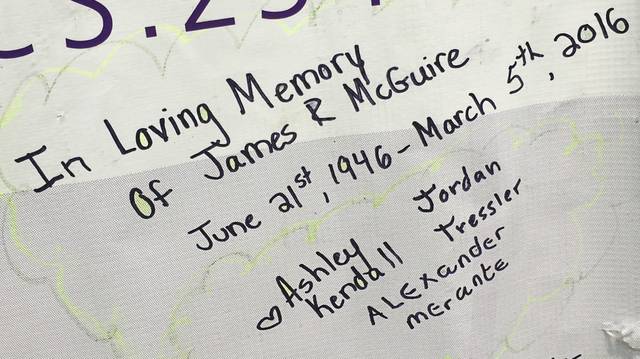 In Loving Memory
Of James R McGuire
June 21st, 1946 - March 5th, 2016
♡ Ashley Jordan
Kendall Tressler
ALExander
merante